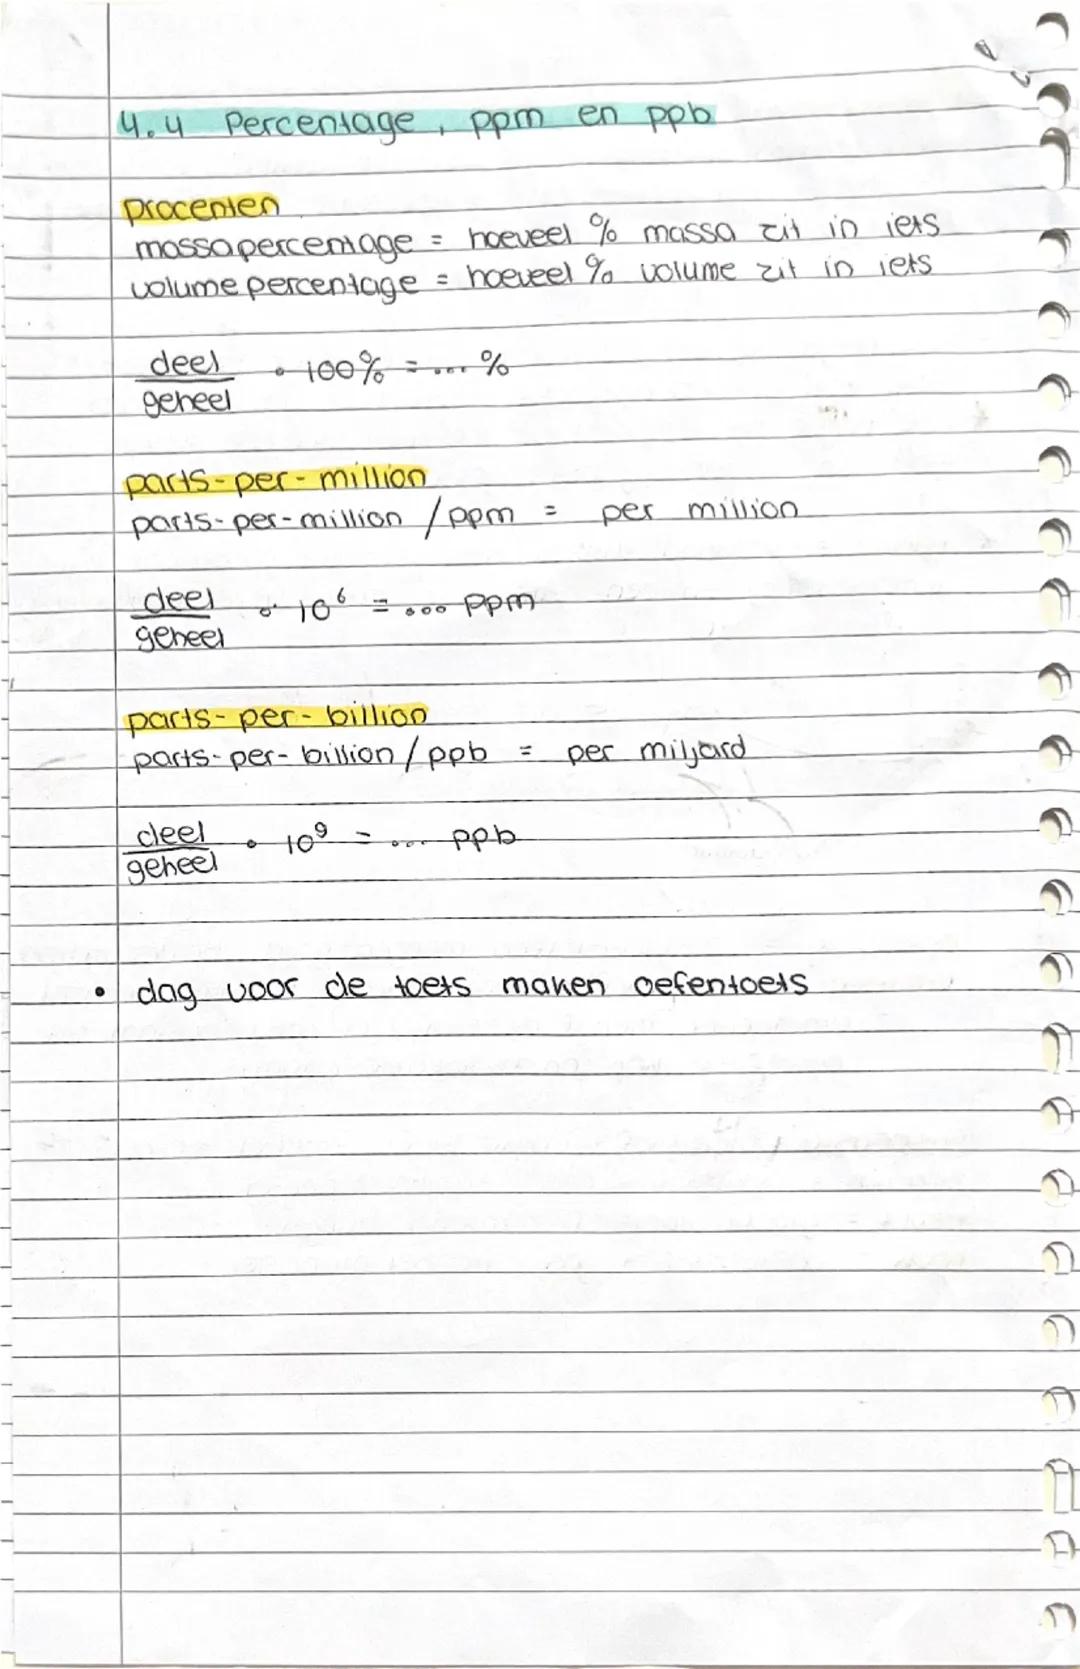 4.4 Percentage, ppm en ppb
procenten
massapercentage = hoeveel % massa zit in iets
volumepercentage = hoeveel % volume zit in iets
deel
· 100% = ... %
geheel
parts-per-million
parts-per-million / ppm = per million
deel
· 10⁶ = ... ppm
geheel
parts-per-billion
parts-per-billion / ppb = per miljard
deel
· 10⁹ = ... ppb
geheel
• dag voor de toets maken oefentoets